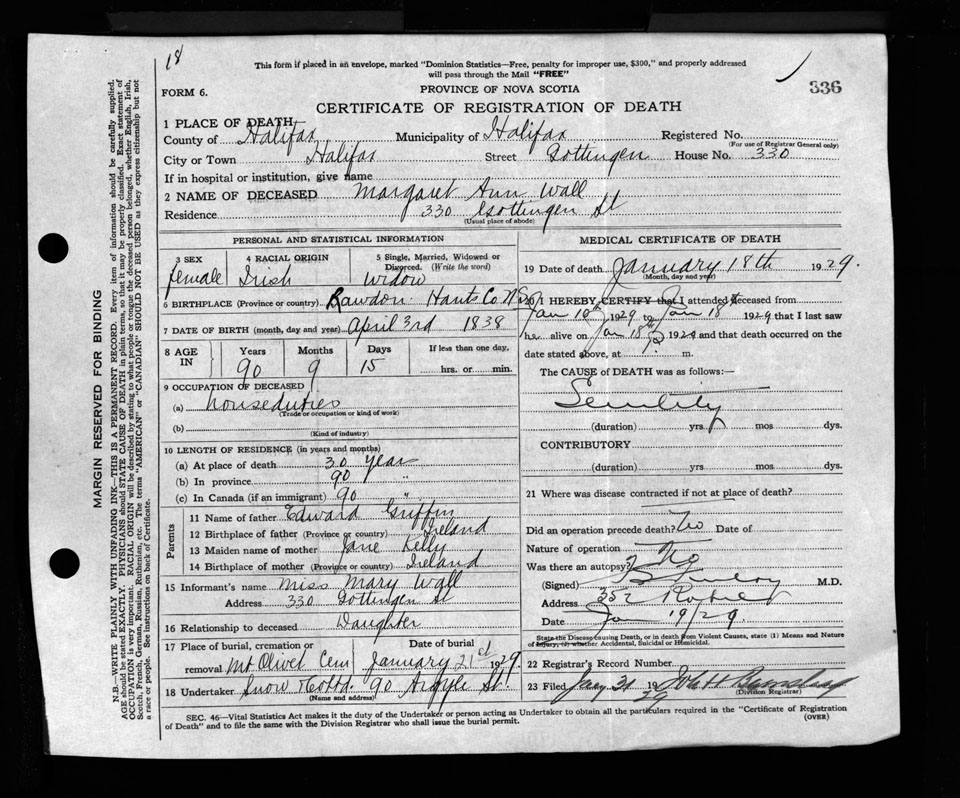 18
This form if placed in an envelope, marked "Dominion Statistics—Free, penalty for improper use, $300," and properly addressed
will pass through the Mail "FREE"
336
FORM 6.
PROVINCE OF NOVA SCOTIA
CERTIFICATE OF REGISTRATION OF DEATH
1 PLACE OF DEATH
County of Halifax Municipality of Halifax Registered No.
(For use of Registrar General only)
City or Town Halifax Street Gottingen House No. 330
If in hospital or institution, give name
2 NAME OF DECEASED Margaret Ann Wall
Residence 330 Gottingen St
(Usual place of abode)
PERSONAL AND STATISTICAL INFORMATION
3 SEX female
4 RACIAL ORIGIN Irish
5 Single, Married, Widowed or
Divorced. (Write the word)
Widow
6 BIRTHPLACE (Province or country) Rawdon Hants Co N.S.
7 DATE OF BIRTH (month, day and year) April 3rd 1838
8 AGE IN Years 90 Months 9 Days 15 If less than one day, hrs. or min.
9 OCCUPATION OF DECEASED
(a) houseduties
(Trade or occupation or kind of work)
(b)
(Kind of industry)
10 LENGTH OF RESIDENCE (in years and months)
(a) At place of death 30 year
(b) In province 90 "
(c) In Canada (if an immigrant) 90 "
Parents
11 Name of father Edward Griffin
12 Birthplace of father (Province or country) Ireland
13 Maiden name of mother Jane Kelly
14 Birthplace of mother (Province or country) Ireland
15 Informant's name Miss Mary Wall
Address 330 Gottingen St
16 Relationship to deceased Daughter
17 Place of burial, cremation or Date of burial
removal Mt Olivet Cem January 21st 1929
18 Undertaker Snow & Co Ltd 90 Argyle St.
(Name and address)
MEDICAL CERTIFICATE OF DEATH
19 Date of death January 18th 1929.
(Month, day and year)
20 I HEREBY CERTIFY that I attended deceased from
Jan 10th 1929 to Jan 18th 1929 that I last saw
h alive on Jan 18th 1929 and that death occurred on the
date stated above, at m.
The CAUSE of DEATH was as follows:
Senility
(duration) yrs mos dys.
CONTRIBUTORY
(duration) yrs. mos. dys.
21 Where was disease contracted if not at place of death?
Did an operation precede death? No Date of
Nature of operation
Was there an autopsy? No
(Signed) M.D.
Address 352 Robie St
Date Jan 19/29
State the Disease causing Death, or in death from Violent Causes, state (1) Means and Nature
of Injury, (2) whether Accidental, Suicidal or Homicidal.
22 Registrar's Record Number
23 Filed Jany 31 1929
(Division Registrar)
SEC. 46—Vital Statistics Act makes it the duty of the Undertaker or Person acting as Undertaker to obtain all the particulars required in the "Certificate of Registration
of Death" and to file the same with the Division Registrar who shall issue the burial permit.
(OVER)
MARGIN RESERVED FOR BINDING
N.B.—WRITE PLAINLY WITH UNFADING INK—THIS IS A PERMANENT RECORD. Every item of information should be carefully supplied.
AGE should be stated EXACTLY. PHYSICIANS should STATE CAUSE OF DEATH in plain terms, so that it may be properly classified. Exact statement of
OCCUPATION is very important. RACIAL ORIGIN will be described by stating to what people or tongue the deceased person belonged, whether English, Irish,
Scotch, French, German, Russian, Ruthenian, etc. The terms "AMERICAN" or "CANADIAN" SHOULD NOT BE USED as they express citizenship but not
a race or people. See instructions on back of Certificate.